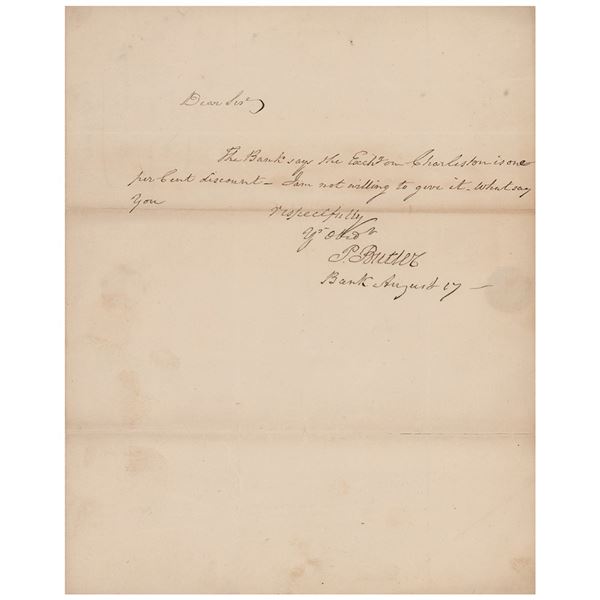 Dear Sir
The Bank says the Exchᵉ on Charleston is one
per Cent discount – I am not willing to give it – What say
You
respectfully
Yʳ Obᵈᵗ
P. Butler
Bank August 17 –